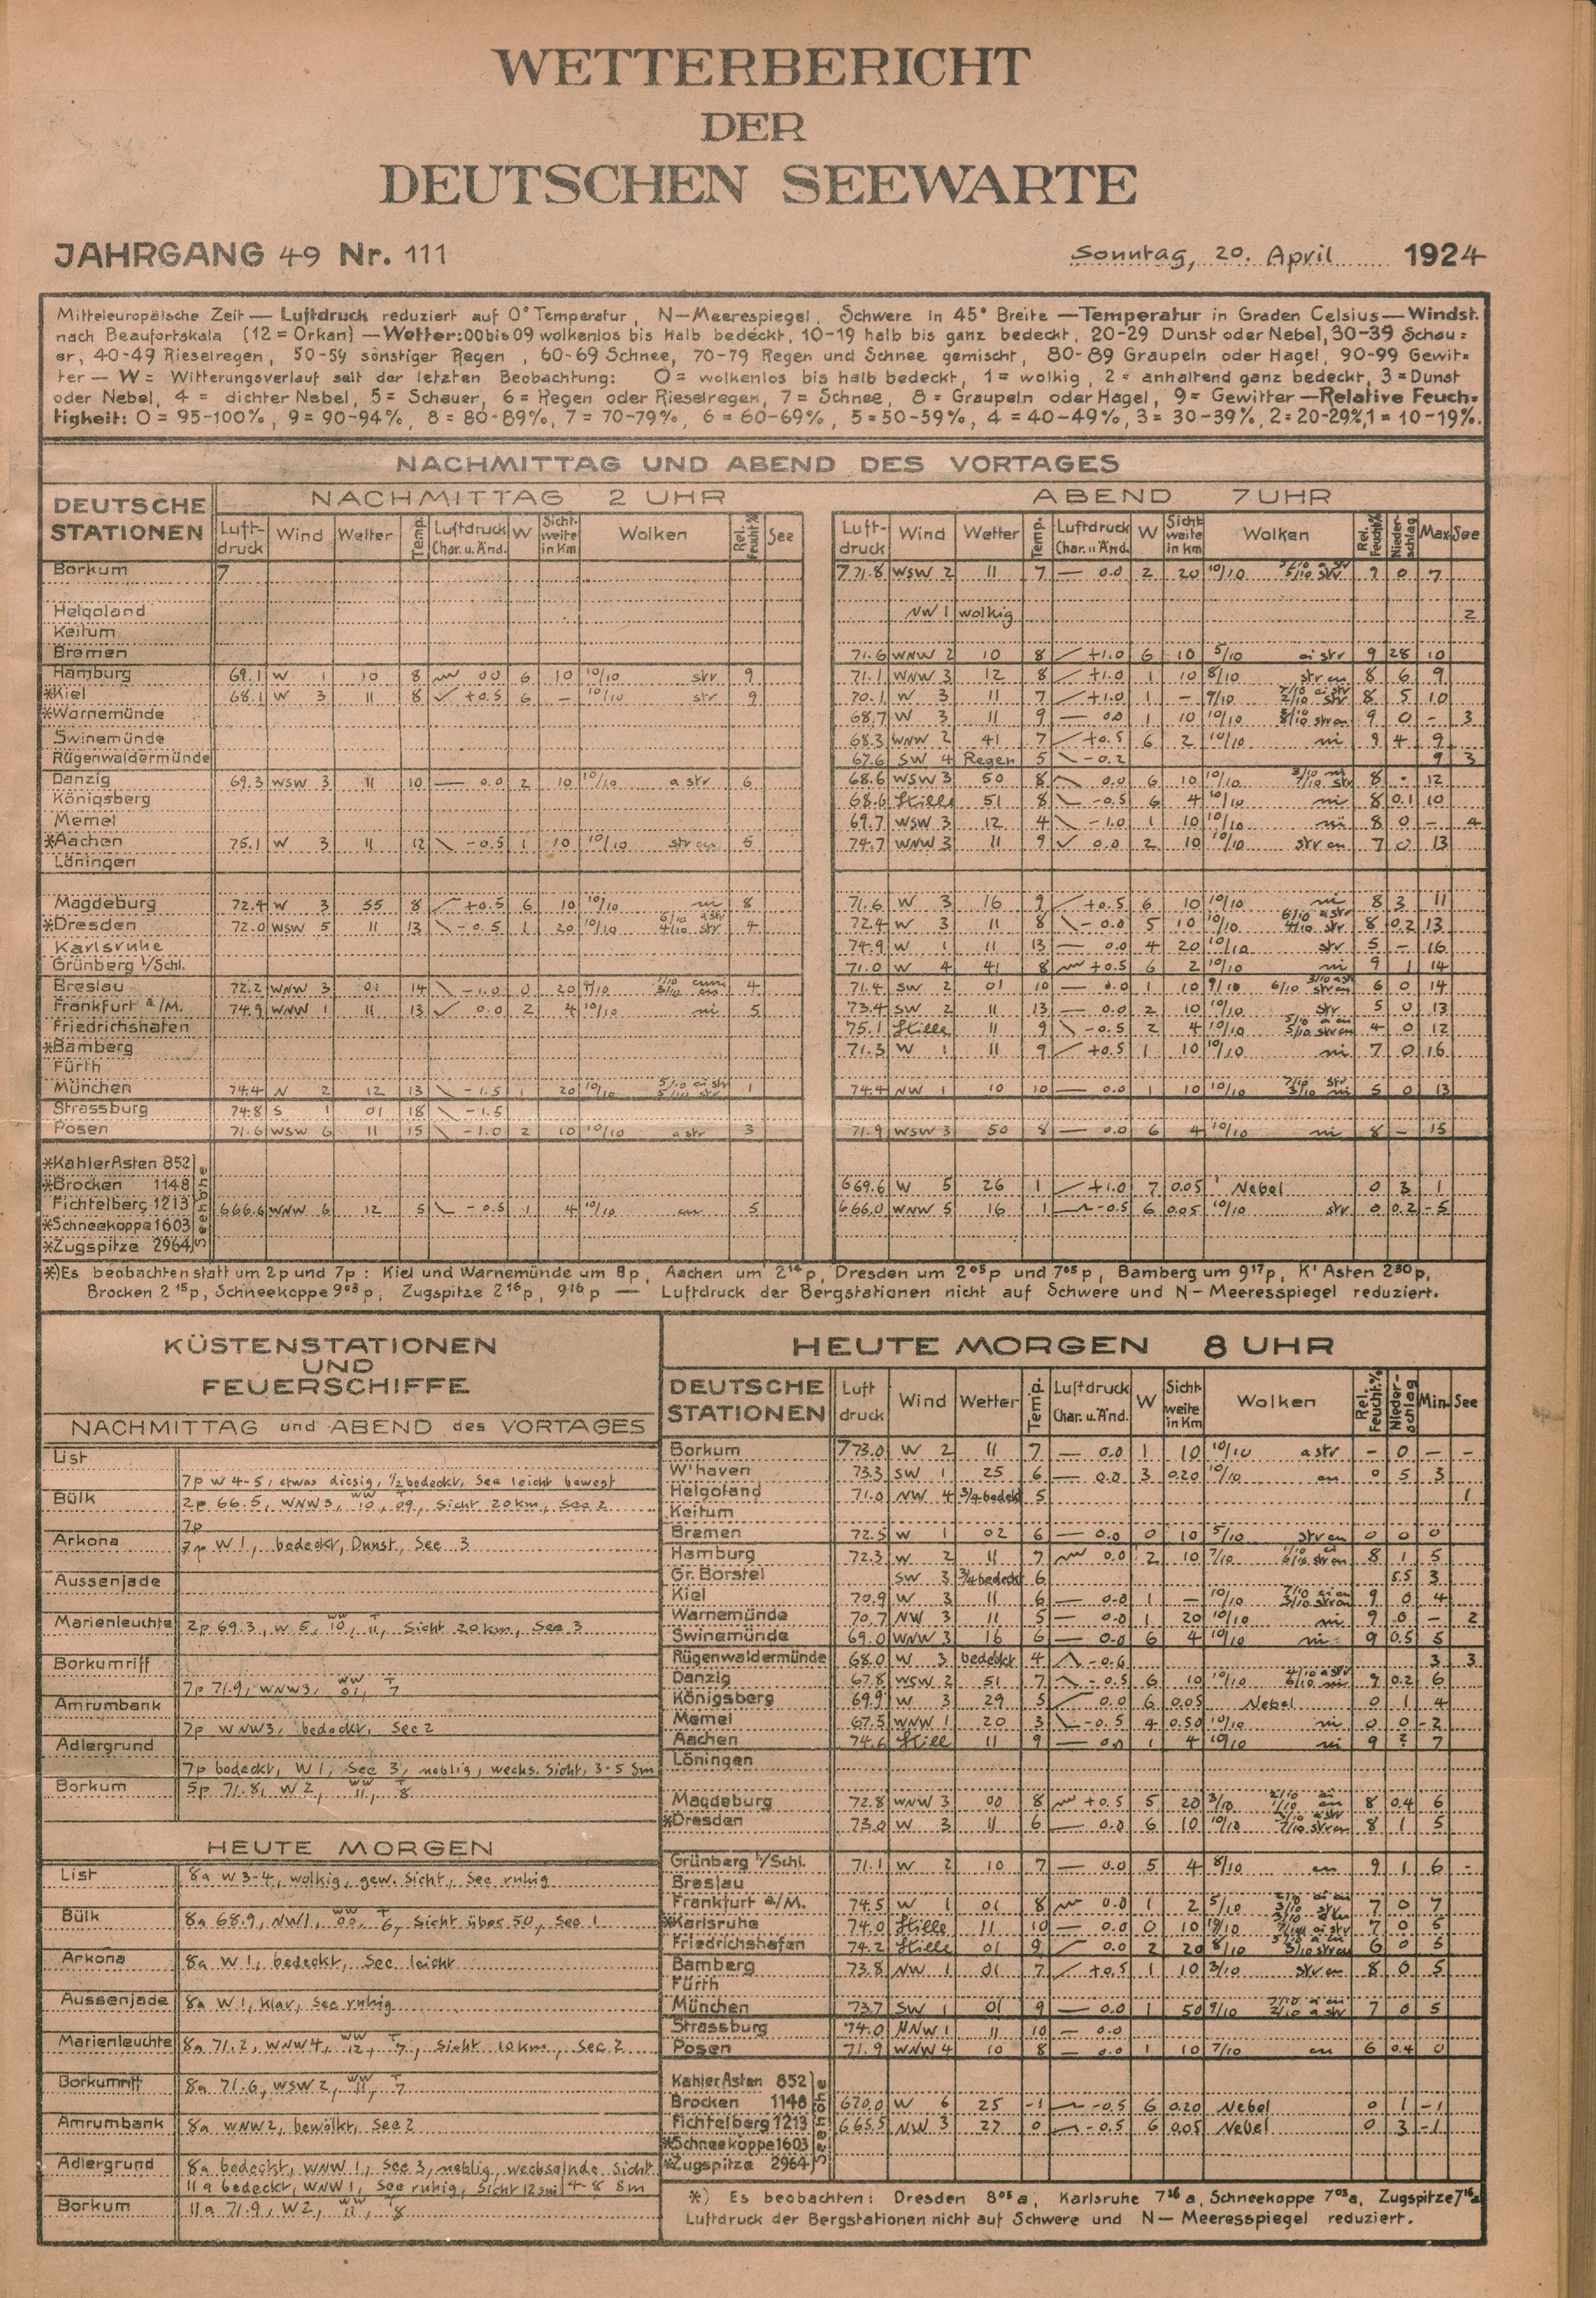 WETTERBERICHT
DER
DEUTSCHEN SEEWARTE
JAHRGANG 49 Nr. 111
Sonntag, 20. April 1924
Mitteleuropäische Zeit — Luftdruck reduziert auf 0° Temperatur, N—Meerespiegel, Schwere in 45° Breite — Temperatur in Graden Celsius — Windst.
nach Beaufortskala (12 = Orkan) — Wetter: 00 bis 09 wolkenlos bis halb bedeckt, 10-19 halb bis ganz bedeckt, 20-29 Dunst oder Nebel, 30-39 Schau=
er, 40-49 Rieselregen, 50-59 sonstiger Regen, 60-69 Schnee, 70-79 Regen und Schnee gemischt, 80-89 Graupeln oder Hagel, 90-99 Gewit=
ter — W = Witterungsverlauf seit der letzten Beobachtung: 0 = wolkenlos bis halb bedeckt, 1 = wolkig, 2 = anhaltend ganz bedeckt, 3 = Dunst
oder Nebel, 4 = dichter Nebel, 5 = Schauer, 6 = Regen oder Rieselregen, 7 = Schnee, 8 = Graupeln oder Hagel, 9 = Gewitter — Relative Feuch=
tigkeit: 0 = 95-100%, 9 = 90-94%, 8 = 80-89%, 7 = 70-79%, 6 = 60-69%, 5 = 50-59%, 4 = 40-49%, 3 = 30-39%, 2 = 20-29%, 1 = 10-19%.
NACHMITTAG UND ABEND DES VORTAGES
DEUTSCHE STATIONEN
NACHMITTAG 2 UHR
ABEND 7 UHR
Luft-druck Wind Wetter Temp. Luftdruck Char. u. Änd. W Sicht-weite in Km Wolken Rel. Feucht.% See
Luft-druck Wind Wetter Temp. Luftdruck Char. u. Änd. W Sicht-weite in Km Wolken Rel. Feucht.% Nieder-schlag Max. See
Borkum 7 771.8 WSW 2 11 7 — 0.0 2 20 10/10 9 0 7
Helgoland NW 1 wolkig 2
Keitum
Bremen 71.6 WNW 2 10 8 +1.0 6 10 5/10 ci str 9 28 10
Hamburg 69.1 W 1 10 8 0.0 6 10 10/10 str 9 71.1 WNW 3 12 8 +1.0 1 10 8/10 str cu 8 6 9
*Kiel 68.1 W 3 11 8 +0.5 6 — 10/10 str 9 70.1 W 3 11 7 +1.0 1 — 9/10 8 5 10
*Warnemünde 68.7 W 3 11 9 — 0.0 1 10 10/10 9 0 — 3
Swinemünde 68.3 WNW 2 41 7 +0.5 6 2 10/10 ni 9 4 9
Rügenwaldermünde 67.6 SW 4 Regen 5 -0.2 9 3
Danzig 69.3 WSW 3 11 10 — 0.0 2 10 10/10 a str 6 68.6 WSW 3 50 8 0.0 6 10 10/10 8 - 12
Königsberg 68.6 Stille 51 8 -0.5 6 4 10/10 ni 8 0.1 10
Memel 69.7 WSW 3 12 4 -1.0 1 10 10/10 ni 8 0 — 4
*Aachen 75.1 W 3 11 12 -0.5 1 10 10/10 str cu 5 74.7 WNW 3 11 9 0.0 2 10 10/10 str cu 7 0 13
Löningen
Magdeburg 72.4 W 3 55 8 +0.5 6 10 10/10 ni 8 71.6 W 3 16 9 +0.5 6 10 10/10 ni 8 3 11
*Dresden 72.0 WSW 5 11 13 -0.5 1 20 10/10 6/10 a str 4/10 str 4 72.4 W 3 11 8 -0.0 5 10 10/10 6/10 a str 4/10 str 8 0.2 13
Karlsruhe 74.9 W 1 11 13 — 0.0 4 20 10/10 str 5 — 16
Grünberg i/Schl. 71.0 W 4 41 8 +0.5 6 2 10/10 ni 9 1 14
Breslau 72.2 WNW 3 01 14 -1.0 0 20 4/10 4 71.4 SW 2 01 10 — 0.0 1 10 9/10 6 0 14
Frankfurt a/M. 74.9 WNW 1 11 13 0.0 2 4 10/10 ni 5 73.4 SW 2 11 13 — 0.0 2 10 10/10 str 5 0 13
Friedrichshafen 75.1 Stille 11 9 -0.5 2 4 10/10 4 0 12
*Bamberg 71.3 W 1 11 9 +0.5 1 10 10/10 ni 7 0 16
Fürth
München 74.4 N 2 12 13 -1.5 1 20 10/10 5/10 ci str 5/10 str 1 74.4 NW 1 10 10 — 0.0 1 10 10/10 7/10 str 3/10 ni 5 0 13
Strassburg 74.8 S 1 01 18 -1.5
Posen 71.6 WSW 6 11 15 -1.0 2 10 10/10 a str 3 71.9 WSW 3 50 8 — 0.0 6 4 10/10 ni 8 — 15
Seehöhe
*Kahler Asten 852
*Brocken 1148 669.6 W 5 26 1 +1.0 7 0.05 Nebel 0 3 1
Fichtelberg 1213 666.6 WNW 6 12 5 -0.5 1 4 10/10 cu 5 666.0 WNW 5 16 1 -0.5 6 0.05 10/10 str 0 0.2 -5
*Schneekoppe 1603
*Zugspitze 2964
*) Es beobachten statt um 2p und 7p: Kiel und Warnemünde um 8p, Aachen um 2¹⁴p, Dresden um 2⁰⁵p und 7⁰⁵p, Bamberg um 9¹⁷p, K'Asten 2³⁰p,
Brocken 2¹⁵p, Schneekoppe 9⁰³p, Zugspitze 2¹⁶p, 9¹⁶p — Luftdruck der Bergstationen nicht auf Schwere und N—Meeresspiegel reduziert.
KÜSTENSTATIONEN
UND
FEUERSCHIFFE
NACHMITTAG und ABEND des VORTAGES
List 7p W 4-5, etwas diesig, ½ bedeckt, See leicht bewegt
Bülk 2p 66.5, WNW3, WW 10, T 09, Sicht 20 km, See 2
7p
Arkona 7p W1, bedeckt, Dunst, See 3
Aussenjade
Marienleuchte 2p 69.3, W 5, WW 10, T 11, Sicht 20 km, See 3
Borkumriff 7p 71.9, WNW3, WW 01, T 7
Amrumbank 7p WNW3, bedeckt, See 2
Adlergrund 7p bedeckt, W1, See 3, neblig, wechs. Sicht, 3-5 Sm
Borkum 5p 71.8, W2, WW 11, T 8
HEUTE MORGEN
List 8a W 3-4, wolkig, gew. Sicht, See ruhig
Bülk 8a 68.9, NW1, WW 00, T 6, Sicht über 50, See 1
Arkona 8a W1, bedeckt, See leicht
Aussenjade 8a W1, klar, See ruhig
Marienleuchte 8a 71.2, WNW4, WW 12, T 7, Sicht 10 km, See 2
Borkumriff 8a 71.6, WSW2, WW 11, T 7
Amrumbank 8a WNW2, bewölkt, See 2
Adlergrund 8a bedeckt, WNW1, See 3, neblig, wechselnde Sicht
11a bedeckt, WNW1, See ruhig, Sicht 12 sml 4-8 Sm
Borkum 11a 71.9, W2, WW 11, 8
HEUTE MORGEN 8 UHR
DEUTSCHE STATIONEN Luftdruck Wind Wetter Temp. Luftdruck Char. u. Änd. W Sicht-weite in Km Wolken Rel. Feucht.% Nieder-schlag Min. See
Borkum 773.0 W 2 11 7 — 0.0 1 10 10/10 a str — 0 — —
W'haven 73.3 SW 1 25 6 — 0.0 3 0.20 10/10 cu 0 5 3
Helgoland 71.0 NW 4 ¾ bedeckt 5 1
Keitum
Bremen 72.5 W 1 02 6 — 0.0 0 10 5/10 str cu 0 0 0
Hamburg 72.3 W 2 11 7 0.0 2 10 7/10 8 1 5
Gr. Borstel SW 3 ¾ bedeckt 6 5.5 3
Kiel 70.9 W 3 11 6 — 0.0 1 — 10/10 9 0 4
Warnemünde 70.7 NW 3 11 5 — 0.0 1 20 10/10 ni 9 0 — 2
Swinemünde 69.0 WNW 3 16 6 — 0.0 6 4 10/10 ni 9 0.5 5
Rügenwaldermünde 68.0 W 3 bedeckt 4 -0.6 3 3
Danzig 67.8 WSW 2 51 7 -0.5 6 10 10/10 9 0.2 6
Königsberg 69.9 W 3 29 5 0.0 6 0.05 Nebel 0 1 4
Memel 67.5 WNW 1 20 3 -0.5 4 0.50 10/10 ni 0 0 -2
Aachen 74.6 Still 11 9 — 0.0 1 4 10/10 ni 9 ? 7
Löningen
Magdeburg 72.8 WNW 3 00 8 +0.5 5 20 3/10 8 0.4 6
*Dresden 73.0 W 3 11 6 — 0.0 6 10 10/10 8 1 5
Grünberg i/Schl. 71.1 W 2 10 7 — 0.0 5 4 8/10 cu 9 1 6 -
Breslau
Frankfurt a/M. 74.5 W 1 01 8 0.0 1 2 5/10 7 0 7
*Karlsruhe 74.0 Stille 11 10 — 0.0 0 10 7 0 5
Friedrichshafen 74.2 Stille 01 9 0.0 2 20 8/10 6 0 5
Bamberg 73.8 NW 1 01 7 +0.5 1 10 3/10 str cu 8 0 5
Fürth
München 73.7 SW 1 01 9 — 0.0 1 50 9/10 7 0 5
Strassburg 74.0 NNW 1 11 10 — 0.0
Posen 71.9 WNW 4 10 8 — 0.0 1 10 7/10 cu 6 0.4 0
Seehöhe
Kahler Asten 852
Brocken 1148 670.0 W 6 25 -1 -0.5 6 0.20 Nebel 0 1 -1
Fichtelberg 1213 665.5 NW 3 27 0 -0.5 6 0.05 Nebel 0 3 -1
*Schneekoppe 1603
*Zugspitze 2964
*) Es beobachten: Dresden 8⁰⁵a, Karlsruhe 7²⁶a, Schneekoppe 7⁰³a, Zugspitze 7¹⁶a
Luftdruck der Bergstationen nicht auf Schwere und N—Meeresspiegel reduziert.